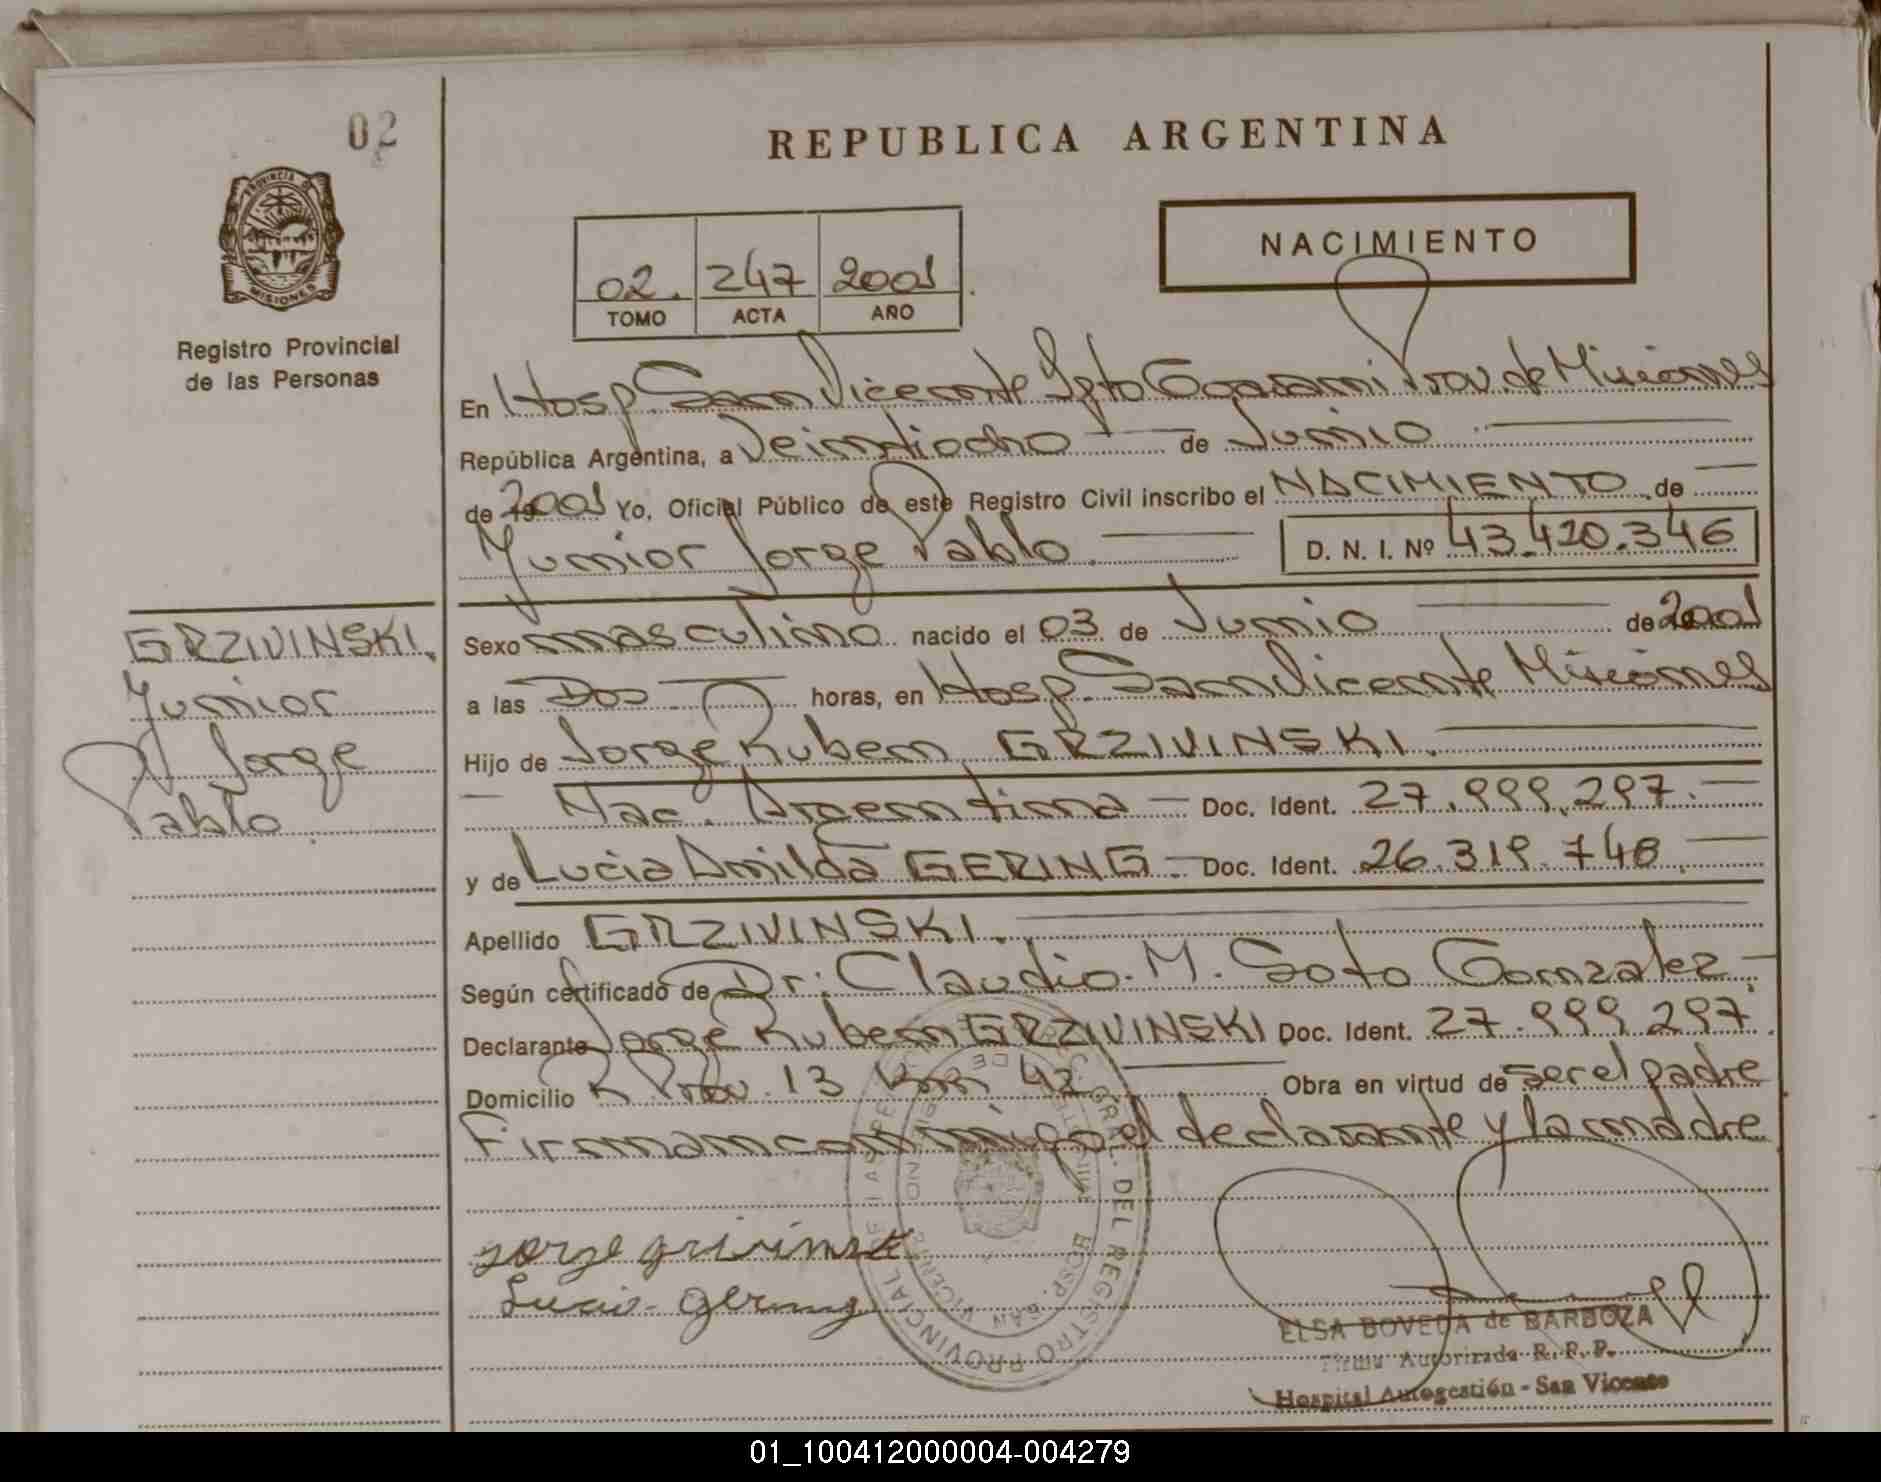 02
REPUBLICA ARGENTINA
PROVINCIA DE
MISIONES
Registro Provincial
de las Personas
02. 247 2001
TOMO ACTA AÑO
NACIMIENTO
En Hosp. San Vicente Dpto Guarani Prov. de Misiones
República Argentina, a Veintiocho de Junio
de 2001 Yo, Oficial Público de este Registro Civil inscribo el NACIMIENTO de
Yunior Jorge Pablo. D. N. I. Nº 43.420.346
GRZIVINSKI.
Yunior
Jorge
Pablo
Sexo masculino nacido el 03 de Junio de 2001
a las Dos horas, en Hosp. San Vicente Misiones
Hijo de Jorge Ruben GRZIVINSKI.
Nac. Argentina Doc. Ident. 27.999.297.
y de Lucia Amilda GERING. Doc. Ident. 26.319.748.
Apellido GRZIVINSKI.
Según certificado de Dr: Claudio. M. Soto Gonzalez.
Declarante Jorge Ruben GRZIVINSKI Doc. Ident. 27.999.297.
Domicilio R. Prov. 13 Km 42 Obra en virtud de ser el padre
Firman conmigo el declarante y la madre
Lucia Gering
DEL REGISTRO PROVINCIAL
HOSP. SAN VICENTE
ELSA BOVEDA de BARBOZA
Firma Autorizada R. P. P.
Hospital Autogestión - San Vicente
01_100412000004-004279